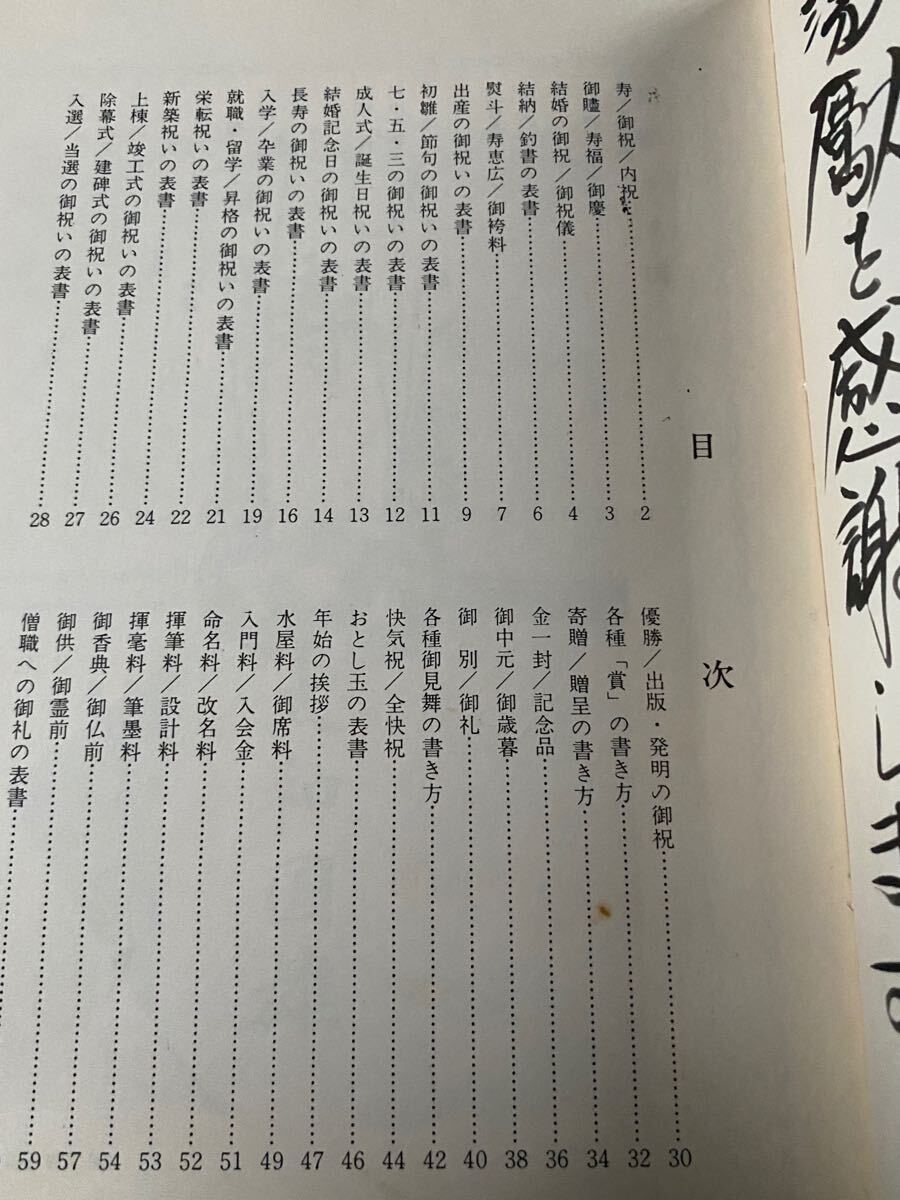 目次
寿/御祝/内祝……2
御贐/寿福/御慶……3
結婚の御祝/御祝儀……4
結納/釣書の表書……6
熨斗/寿恵広/御袴料……7
出産の御祝いの表書……9
初雛/節句の御祝いの表書……11
七・五・三の御祝いの表書……12
成人式/誕生日祝いの表書……13
結婚記念日の御祝いの表書……14
長寿の御祝いの表書……16
入学/卒業の御祝いの表書……19
就職・留学/昇格の御祝いの表書……21
栄転祝いの表書……22
新築祝いの表書……24
上棟/竣工式の御祝いの表書……26
除幕式/建碑式の御祝いの表書……27
入選/当選の御祝いの表書……28
優勝/出版・発明の御祝……30
各種「賞」の書き方……32
寄贈/贈呈の書き方……34
金一封/記念品……36
御中元/御歳暮……38
御別/御礼……40
各種御見舞の書き方……42
快気祝/全快祝……44
おとし玉の表書……46
年始の挨拶……47
水屋料/御席料……49
入門料/入会金……51
命名料/改名料……52
揮筆料/設計料……53
揮毫料/筆墨料……54
御香典/御仏前……57
御供/御霊前……59
僧職への御礼の表書……
を感謝します